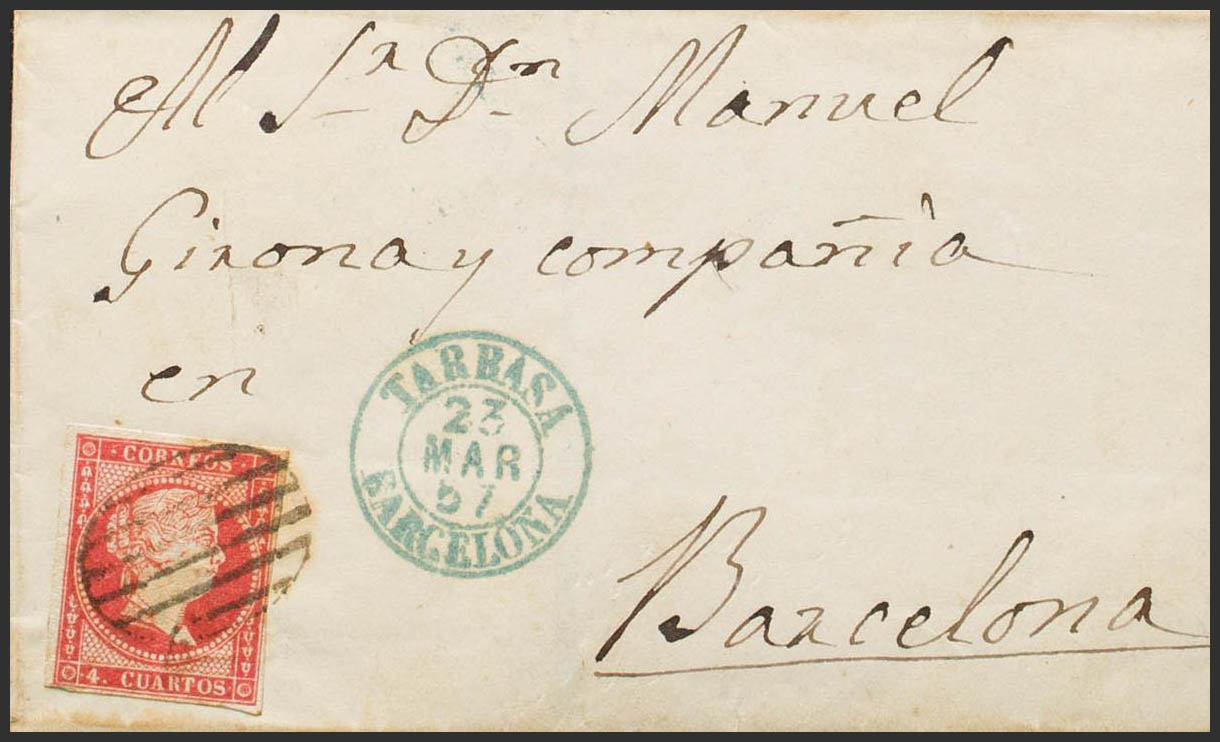 Al Sr Dn Manuel
Girona y compañía
en
TARRASA
23
MAR
57
BARCELONA
CORREOS
4. CUARTOS
Barcelona